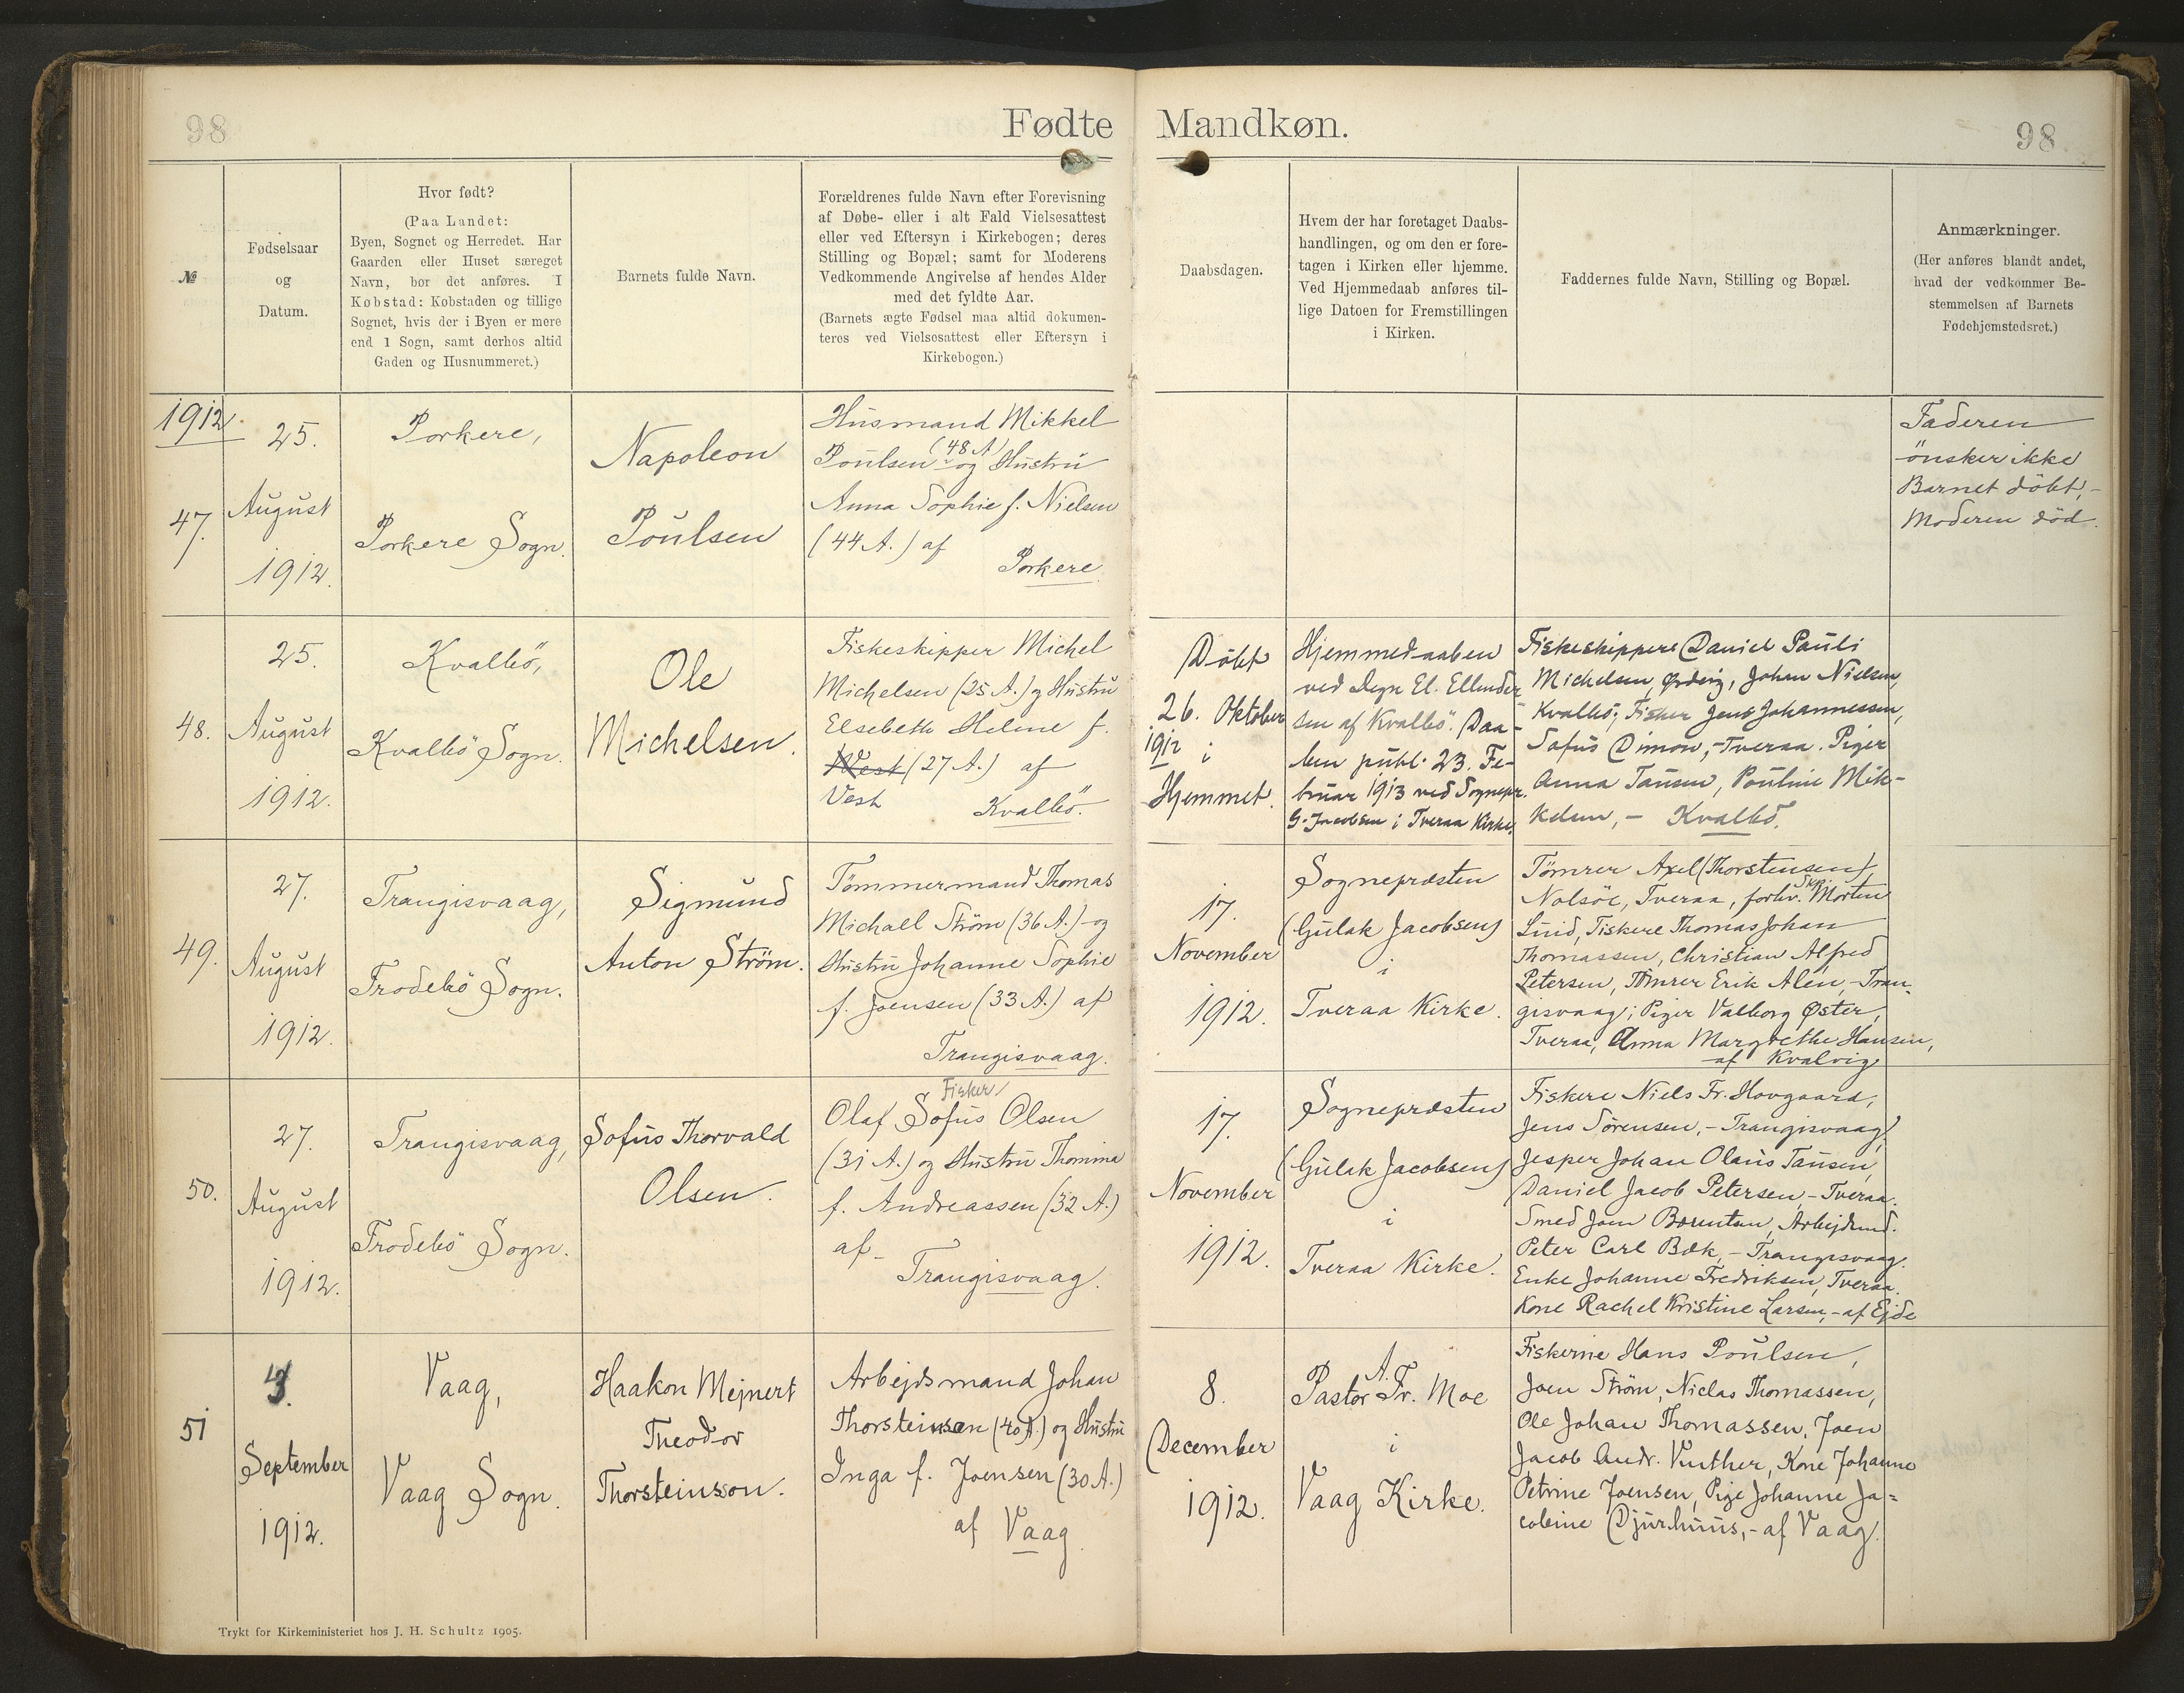 98
Fødte
Mandkøn.
98
№
Fødselsaar
og
Datum.
Hvor født?
(Paa Landet:
Byen, Sognet og Herredet. Har
Gaarden eller Huset særeget
Navn, bør det anføres. I
Købstad: Købstaden og tillige
Sognet, hvis der i Byen er mere
end 1 Sogn, samt derhos altid
Gaden og Husnummeret.)
Barnets fulde Navn.
Forældrenes fulde Navn efter Forevisning
af Døbe- eller i alt Fald Vielsesattest
eller ved Eftersyn i Kirkebogen; deres
Stilling og Bopæl; samt for Moderens
Vedkommende Angivelse af hendes Alder
med det fyldte Aar.
(Barnets ægte Fødsel maa altid dokumen-
teres ved Vielsesattest eller Eftersyn i
Kirkebogen.)
Daabsdagen.
Hvem der har foretaget Daabs-
handlingen, og om den er fore-
tagen i Kirken eller hjemme.
Ved Hjemmedaab anføres til-
lige Datoen for Fremstillingen
i Kirken.
Faddernes fulde Navn, Stilling og Bopæl.
Anmærkninger.
(Her anføres blandt andet,
hvad der vedkommer Be-
stemmelsen af Barnets
Fødehjemstedsret.)
1912.
47.
25.
August
1912.
Porkere,
Porkere Sogn.
Napoleon
Poulsen
Husmand Mikkel
Poulsen (48 A) og Hustru
Anna Sophie f. Nielsen
(44 A.) af
Porkere
Faderen
önsker ikke
Barnet döbt,-
Moderen död.
48.
25.
August
1912.
Kvalbö,
Kvalbö Sogn.
Ole
Michelsen.
Fiskeskipper Michel
Michelsen (25 A.) og Hustru
Elsebeth Helene f.
West (27 A.) af
Vest Kvalbö.
Döbt
26. Oktober
1912 i
Hjemmet.
Hjemmedaaben
ved Degn El. Ellinds
sen af Kvalbö. Daa-
ben publ. 23. Fe-
bruar 1913 ved Sognepr.
G. Jacobsen i Tveraa Kirke.
Fiskeskippere Daniel Pauli
Michelsen, Johan Nielsen,
Kvalbö; Fisker Jens Johannessen,
Sofus Dimon,-Tveraa. Piger
Anna Tausen, Pouline Mik-
kelsen,- Kvalbö.
49.
27.
August
1912.
Trangisvaag,
Frodebö Sogn.
Sigmund
Anton Ström.
Tömmermand Thomas
Michael Ström (36 A.) og
Hustru Johanne Sophie
f. Joensen (33 A.) af
Trangisvaag.
17.
November
1912.
Sognepræsten
(Gulak Jacobsen)
i
Tveraa Kirke.
Tömrer Axel (Thorstensen)
Nolsöe, Tveraa, forhv. Skp. Morten
Lund, Fiskere Thomas Johan
Thomassen, Christian Alfred
Petersen, Tömrer Erik Alen,-Tran-
gisvaag; Piger Valborg Øster,
Tveraa, Anna Margrethe Hansen,
af Kvalvig
50.
27.
August
1912.
Trangisvaag,
Frodebö Sogn.
Sofus Thorvald
Olsen.
Fisker
Olaf Sofus Olsen
(31 A.) og Hustru Thomina
f. Andreassen (32 A.)
af-
Trangisvaag.
17.
November
1912.
Sognepræsten
(Gulak Jacobsen)
i
Tveraa Kirke.
Fiskere Niels Fr. Hovgaard,
Jens Sörensen,-Trangisvaag,
Jesper Johan Olaus Tausen,
Daniel Jacob Petersen,-Tveraa.
Smed Joen Berentsen, Arbejdsmd.
Peter Carl Bæk,-Trangisvaag.
Enke Johanne Fredriksen, Tveraa.
Kone Rachel Kristine Larsen,-af Ejde
51
3.
September
1912.
Vaag,
Vaag Sogn.
Haakon Mejnert
Theodor
Thorsteinsson.
Arbejdsmand Johan
Thorsteinsson (40 A.) og Hustru
Inga f. Joensen (30 A.)
af Vaag
8.
December
1912.
Pastor A. Fr. Moe
i
Vaag Kirke.
Fiskerne Hans Poulsen,
Joen Ström, Niclas Thomassen,
Ole Johan Thomassen, Joen
Jacob Andr. Vinther, Kone Johanne
Petrine Joensen, Pige Johanne Ja=
cobine Djurhuus,-af Vaag.
Trykt for Kirkeministeriet hos J. H. Schultz 1905.